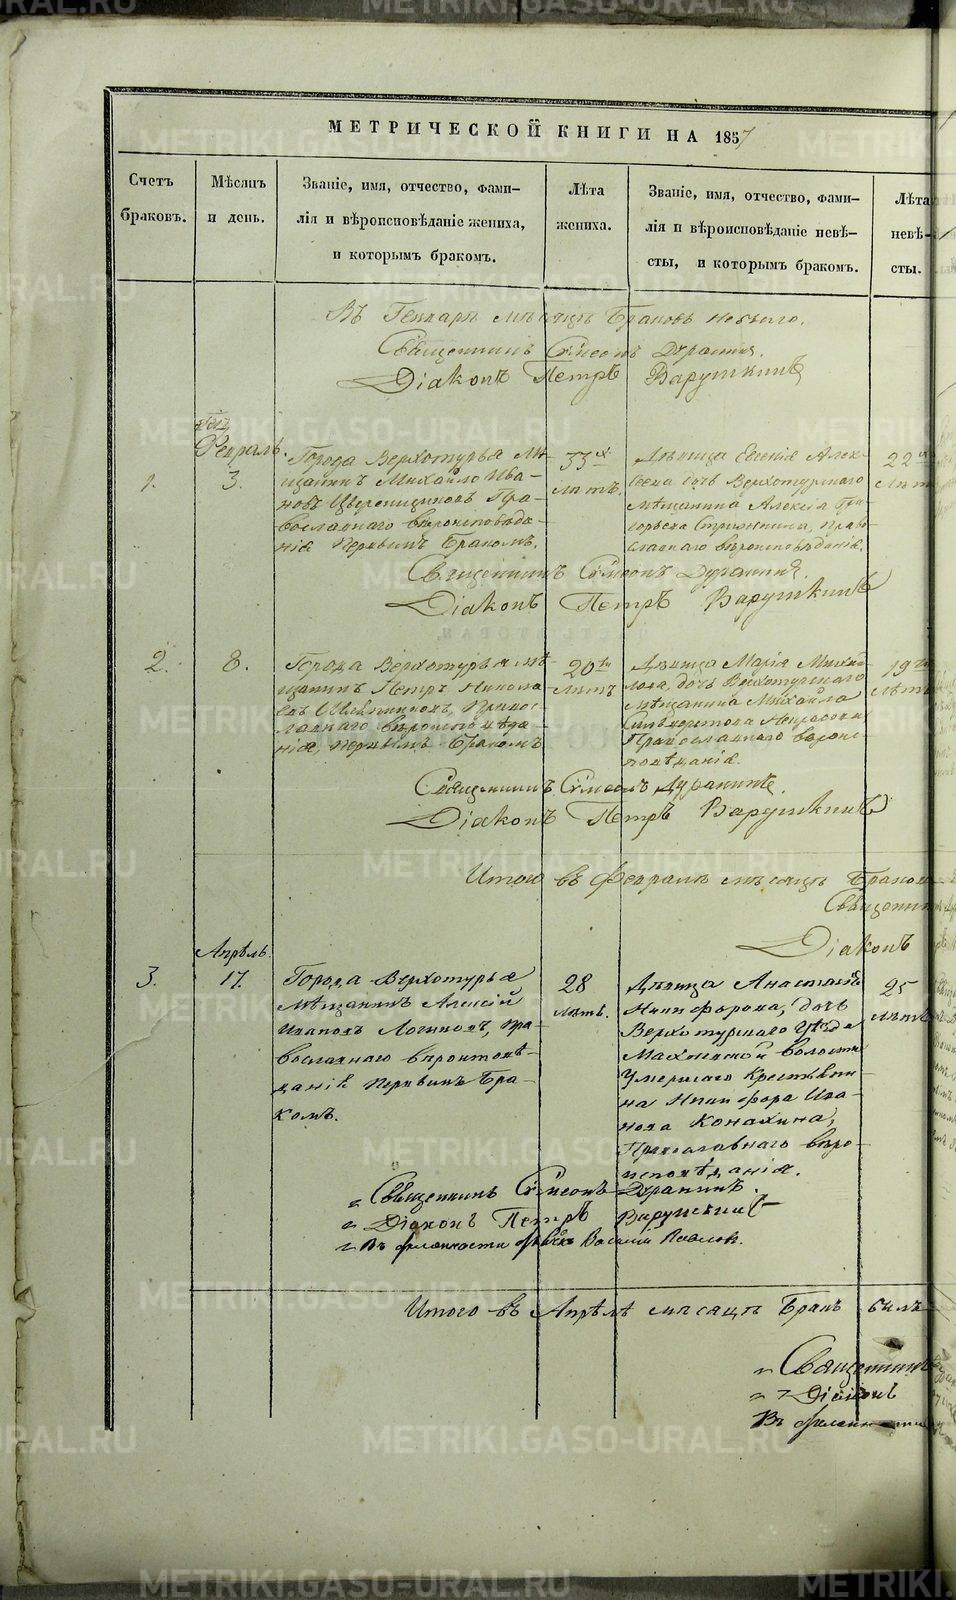 МЕТРИЧЕСКОЙ КНИГИ НА 1857
Счетъ
браковъ.
Мѣсяцъ
и день.
Званіе, имя, отчество, фами-
лія и вѣроисповѣданіе жениха,
и которымъ бракомъ.
Лѣта
жениха.
Званіе, имя, отчество, фами-
лія и вѣроисповѣданіе невѣ-
сты, и которымъ бракомъ.
Лѣта
невѣ-
сты.
Въ Генварѣ мѣсяцѣ браковъ небыло.
Священникъ Сѵмеонъ
Діаконъ Петръ Варушкинъ
Февраль.
1.
3.
Города Верхотурья Мѣ-
щанинъ Михайло Ива-
новъ Пра-
вославнаго вѣроисповѣда-
нія первымъ бракомъ.
33хъ
лѣтъ.
Дѣвица Евгенія Алек-
сѣева дочь Верхотурскаго
мѣщанина Алексія Гри-
горьева Право-
славнаго вѣроисповѣданія.
22хъ
Лѣт
Священникъ Сѵмеонъ
Діаконъ Петръ Варушкинъ
2.
8.
Города Верхотурья мѣ-
щанинъ Петръ Никола-
евъ Правос-
лавнаго вѣроисповѣда-
нія, первымъ бракомъ
20ти
лѣтъ
Дѣвица Марія Михай-
лова, дочь Верхотурскаго
мѣщанина Михайла
Православнаго вѣроис-
повѣданія.
19ти
лѣтъ
Священникъ Сѵмеонъ
Діаконъ Петръ Варушкинъ
Итого въ Февралѣ мѣсяцѣ браковъ
Священни
Діаконъ
Апрѣль.
3.
17.
Города Верхотурья
мѣщанинъ Алексій
Ивановъ Логиновъ, пра-
вославнаго вѣроисповѣ-
данія первымъ бра-
комъ.
28
лѣтъ.
Дѣвица Анастасія
Никифорова, дочь
Верхотурскаго Уѣзда
Махневской волости
умершаго крестьяни-
на Никифора Ива-
нова Конахина,
Православнаго вѣро-
исповѣданія.
25
лѣтъ
Священникъ Сѵмеонъ
Діаконъ Петръ Варушкинъ
Въ должности Василій Павловъ.
Итого въ Апрѣлѣ мѣсяцѣ бракъ былъ
Священникъ
Діаконъ
Въ должности
METRIKI.GASO-URAL.RU